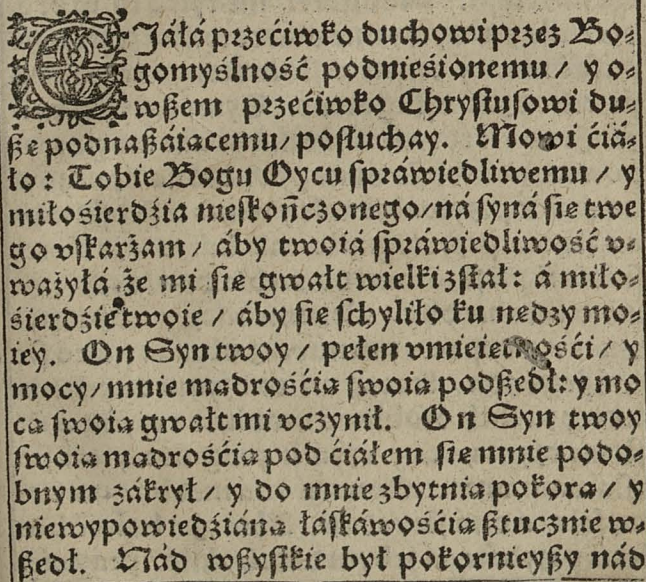 CJáłá przećiwko duchowi przez Bo⸗
gomyślność podnieśionemu / y o⸗
wßem przećiwko Chrystusowi du⸗
ßę podnaßáiącemu / posłuchay. Mowi ćiá⸗
ło: Tobie Bogu Oycu spráwiedliwemu / y
miłośierdźia nieskończonego / ná syná się twe
go vskarżam / áby twoiá spráwiedliwość v⸗
ważyłá że mi się gwałt wielki zstał: á miło⸗
śierdźie twoie / áby się schyliło ku nędzy mo⸗
iey. On Syn twoy / pełen vmieiętnośći / y
mocy / mnie mądrośćią swoią podßedł: y mo
cą swoią gwałt mi vczynił. On Syn twoy
swoią mądrośćią pod ćiáłem się mnie podo⸗
bnym zákrył / y do mnie zbytnią pokorą / y
niewypowiedźiáną łáskáwośćią ßtucznie w⸗
ßedł. Nád wßystkie był pokornieyßy nád